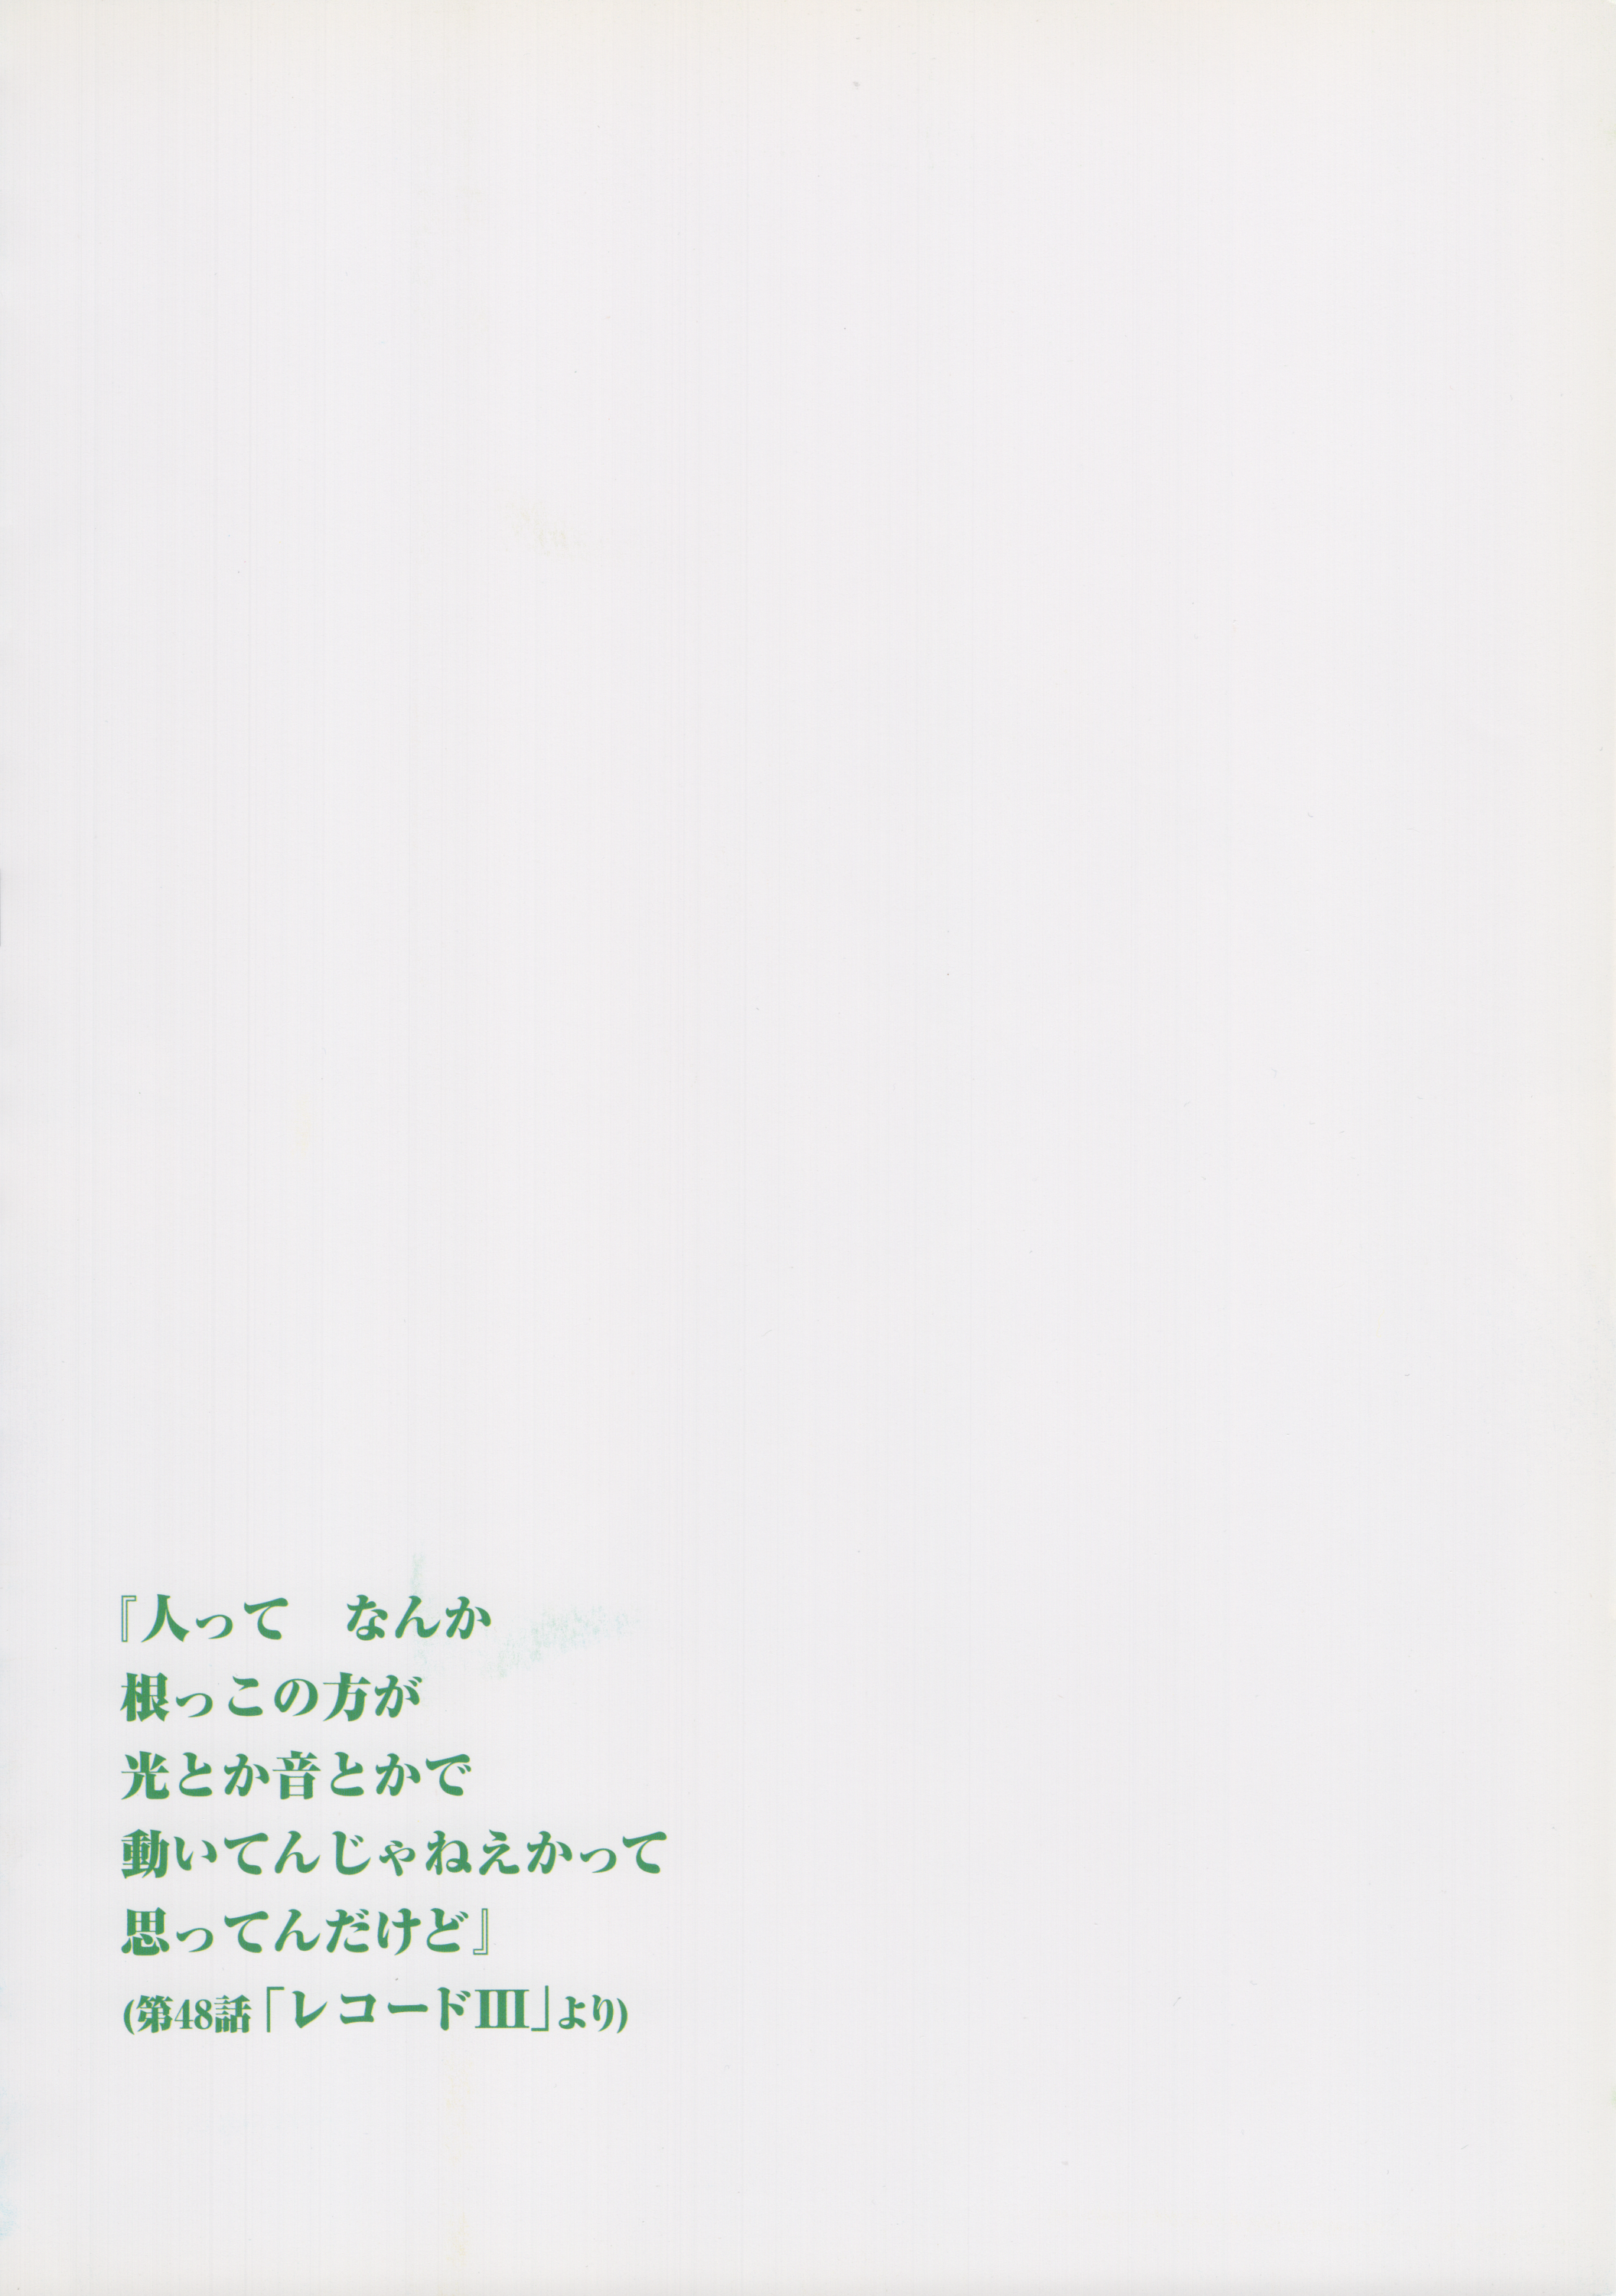 『人って　なんか
根っこの方が
光とか音とかで
動いてんじゃねえかって
思ってんだけど』
(第48話「レコードIII」より)